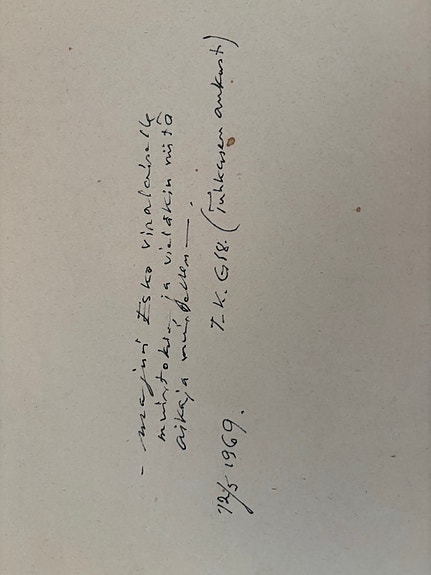 - majuri Esko Viralaiselle
muistoksi ja vieläkin niitä
aikoja muistellen —.
12/5 1969. T. K. G18. (Tuhkasen aukosti)